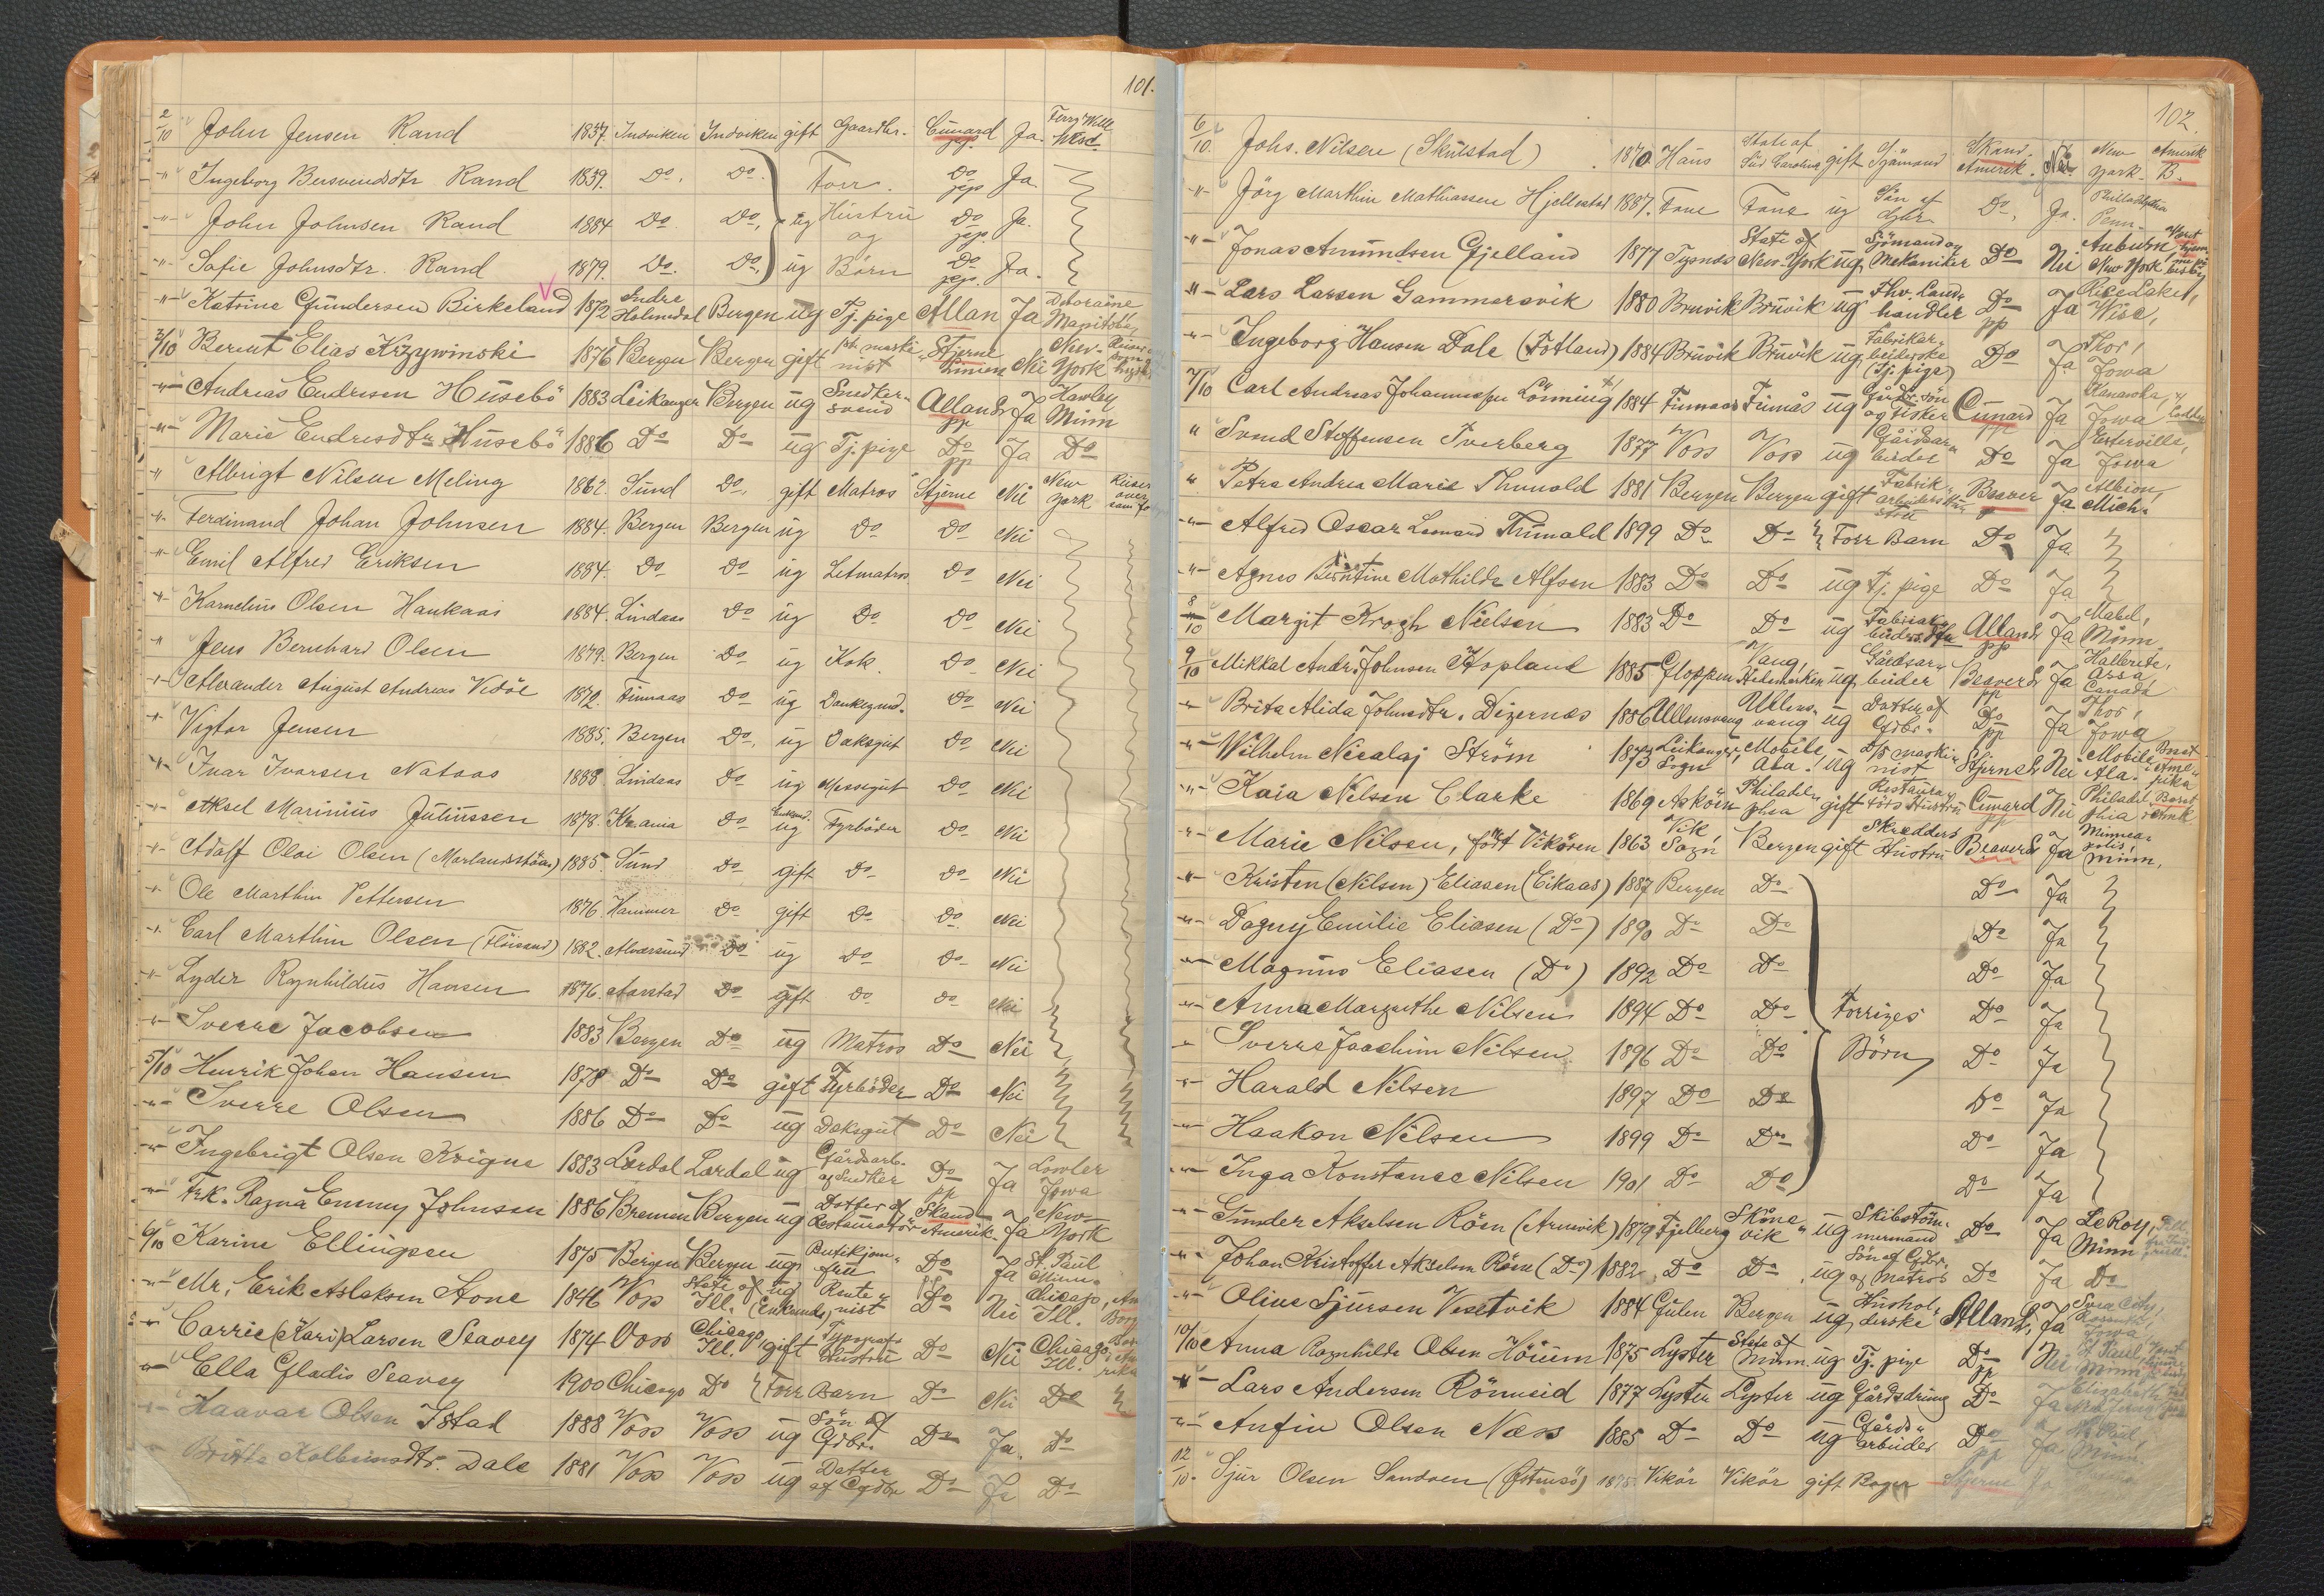 101.
2/10 John Jensen Rand 1837. Indviken Indviken gift Gaardbr. Cunard Ja. Ferry Ville Wisc.
-"- Ingeborg Bersvendsdtr Rand 1839. Do. Do. Forr. Do Ja
-"- John Johnsen Rand 1884 Do. Do. ug Hustru og Do Ja.
-"- Sofie Johnsdtr. Rand 1879. Do. Do. ug Börn Do Ja.
-"- Katrine Gundersen Birkeland 1872 Indre Holmedal Bergen ug Tj. pige Allan Ja Deloraine Manitoba
3/10 Berent Elias Krzywinski 1876 Bergen Bergen gift 1st. maski-nist Stjerne Linien Nei New-York
-"- Andreas Endresen Husebö 1883 Leikanger Bergen ug Snedker-svend Allan Ja Hawley Minn
-"- Marie Endresdtr Husebö 1886 Do Do ug Tj. pige Do pp Ja Do
" Albrigt Nilsen Meling 1867. Sund Do. gift Matros Stjerne Nei New York
-"- Ferdinand Johan Johnsen 1884. Bergen Bergen ug Do Do Nei
-"- Emil Alfred Eriksen 1884. Do Do ug Letmatros Do Nei
-"- Kornelius Olsen Haukaas 1884. Lindaas Do ug Do Do Nei
" Jens Bernhard Olsen 1879. Bergen Do ug Kok Do Nei
-"- Alexander August Andreas Vedöe 1872. Finnaas Do ug Donkeymd. Do Nei
-"- Vigtor Jensen 1885. Bergen Do. ug Daksgut Do Nei
-"- Ivar Ivarsen Nataas 1888. Lindaas Do ug Messegut Do Nei
-"- Aksel Marinius Juliussen 1878. Kr.ania Do Enkemd. ug Fyrböder Do Nei
-"- Adolf Oloi Olsen (Morlandsstöen) 1885. Sund Do gift Do Do Nei
-"- Ole Marthin Pettersen 1876. Hammer Do gift Do Do Nei
-"- Carl Marthin Olsen (Flöisand) 1882. Alversund Do ug Do Do Nei
-"- Lyder Regnhildus Hansen 1876. Aarstad Do gift Do Do Nei
-"- Sverre Jacobsen 1883 Bergen Do ug Matros Do Nei
5/10 Henrik Johan Hansen 1878 Do Do gift Fyrböder Do Nei
-"- Sverre Olsen 1886 Do Do ug Daksgut Do Nei
-"- Ingebrigt Olsen Kvigne 1883 Lærdal Lærdal ug Gårdsarb. og Snedker Do pp Ja Lawler Iowa
-"- Frk. Ragna Emmy Johnsen 1886 Bremen Bergen ug Dotter af Restauratör Skand-Amerik. Ja New-York
6/10 Karine Ellingsen 1875 Bergen Bergen ug Butikjom-fru Do Ja St. Paul Minn.
-"- Mr. Erik Aslaksen Stone 1846 Voss State of Ill. ug (Enkemd) Rente-nist Do Nei Chicago, Ill.
-"- Carrie (Kari) Larsen Seavey 1874 Voss Chicago Ill. gift Typografs Hustru Do Nei Chicago Ill.
-"- Ella Gladis Seavey 1900 Chicago Do Forr Barn Do Nei Do
-"- Haavar Olsen Istad 1888 Voss Voss ug Sön af Gdbr. Do Ja. Do
Britta Kolbeinsdtr. Dale 1881 Voss Voss ug Datter af Gdbr Do Ja Do
102.
6/10. Johs. Nilsen (Skulstad) 1870. Haus State of Süd Carolina gift Sjömand Skand. Amerik. Nei New York. Amerik B.
-"- Jörg Marthin Mathiassen Hjellestad 1887. Fane Fane ug Sön af Gdbr Do. Ja. Philladelphia Penn.
-"- Jonas Amundsen Gjelland 1877 Tysnes State of New-York ug Sjömand og Mekaniker Do Nei Auburn New York
-"- Lars Larsen Gammersvik 1880 Bruvik Bruvik ug Fhv. Land-handler Do pp Ja Rice Lake, Wisc.
-"- Ingeborg Hansen Dale (Fotland) 1884 Bruvik Bruvik ug Fabrikar-beiderske (Tj. pige) Do Ja Thor, Iowa
7/10 Carl Andreas Johannessen Lönning 1884 Finnaas Finnås ug Gårdbr.sön og Fisker Cunard pp Ja Kanawha, Iowa
" Svend Steffensen Tverberg 1877 Voss Voss ug Gårdsar-beider Do Ja Esterville, Iowa
" Petra Andrea Marie Thunold 1881 Bergen Bergen gift Fabrik-arbeiders Hu-stru Beaver Ja Albion, Mich.
-"- Alfred Oscar Leonard Thunold 1899 Do Do Forr Barn Do Ja
-"- Agnes Berntine Mathilde Alfsen 1883 Do Do ug Tj. pige Do Ja
8/10 Margit Krogh Nielsen 1883 Do Do ug Allan pp Ja Mabel, Minn.
9/10 Mikkal Andr. Johnsen Hopland 1885 Gloppen Vang, Hedemarken ug Gårdsar-beider Beaver pp Ja Canada
-"- Brita Alida Johnsdtr. Digernes 1886 Ullensvang Ullens-vang ug Datter af Gdbr. Do pp Ja Thor, Iowa
-"- Wilhelm Nicolaj Ström 1873 Leikanger, Sogn Mobile, Ala. ug maski-nist Stjerne Nei Mobile, Ala. Bosat i Ame-rika
-"- Kaia Nilsen Clarke 1869 Asköen Philadel-phia gift Restaura-törs Hustru Cunard pp Nei Philadel-phia Bosat i Amk.
-"- Marie Nilsen, født Vikören 1863 Vik, Sogn Bergen gift Skredders Hustru Beaver Ja Minnea-polis, Minn.
-"- Kristen (Nilsen) Eliasen (Eikaas) 1887 Bergen Do Do Ja
-"- Dagny Emilie Eliasen (Do) 1890 Do Do Do Ja
-"- Magnus Eliasen (Do) 1892 Do Do Do Ja
-"- Anna Margrethe Nilsen 1894 Do Do Forriges Do Ja
" Sverre Joachim Nilsen 1896 Do Do Börn Do Ja
-"- Harald Nilsen 1897 Do Do Do Ja
-"- Haakon Nilsen 1899 Do Do Do Ja
-"- Inga Konstance Nilsen 1901 Do Do Do Ja
-"- Gunder Akselsen Röen (Arnevik) 1879 Fjelberg Skåne-vik ug Skibstöm-mermand Do Ja LeRoy, Minn
-"- Johan Kristoffer Akselsen Röen (Do) 1882 Do Do ug Sön af Gdbr. og Matros Do Ja Do
-"- Oline Sjursen Visetvik 1884 Gulen Bergen ug Hushol-derske Allan Ja Svea City, Iowa
10/10 Anna Ragnhilde Olsen Höium 1875 Lyster State of Minn. ug Tj. pige Do pp Nei St. Paul, Minn.
-"- Lars Andersen Römseid 1877 Lyster Lyster ug Gårdsdreng Do Ja
-"- Anfin Olsen Næss 1885 Do Do ug Gårds-arbeider Do pp Ja St. Paul, Minn.
12/10. Sjur Olsen Sandven (Östensö) 1875. Vikör Vikör gift Bager Stjerne